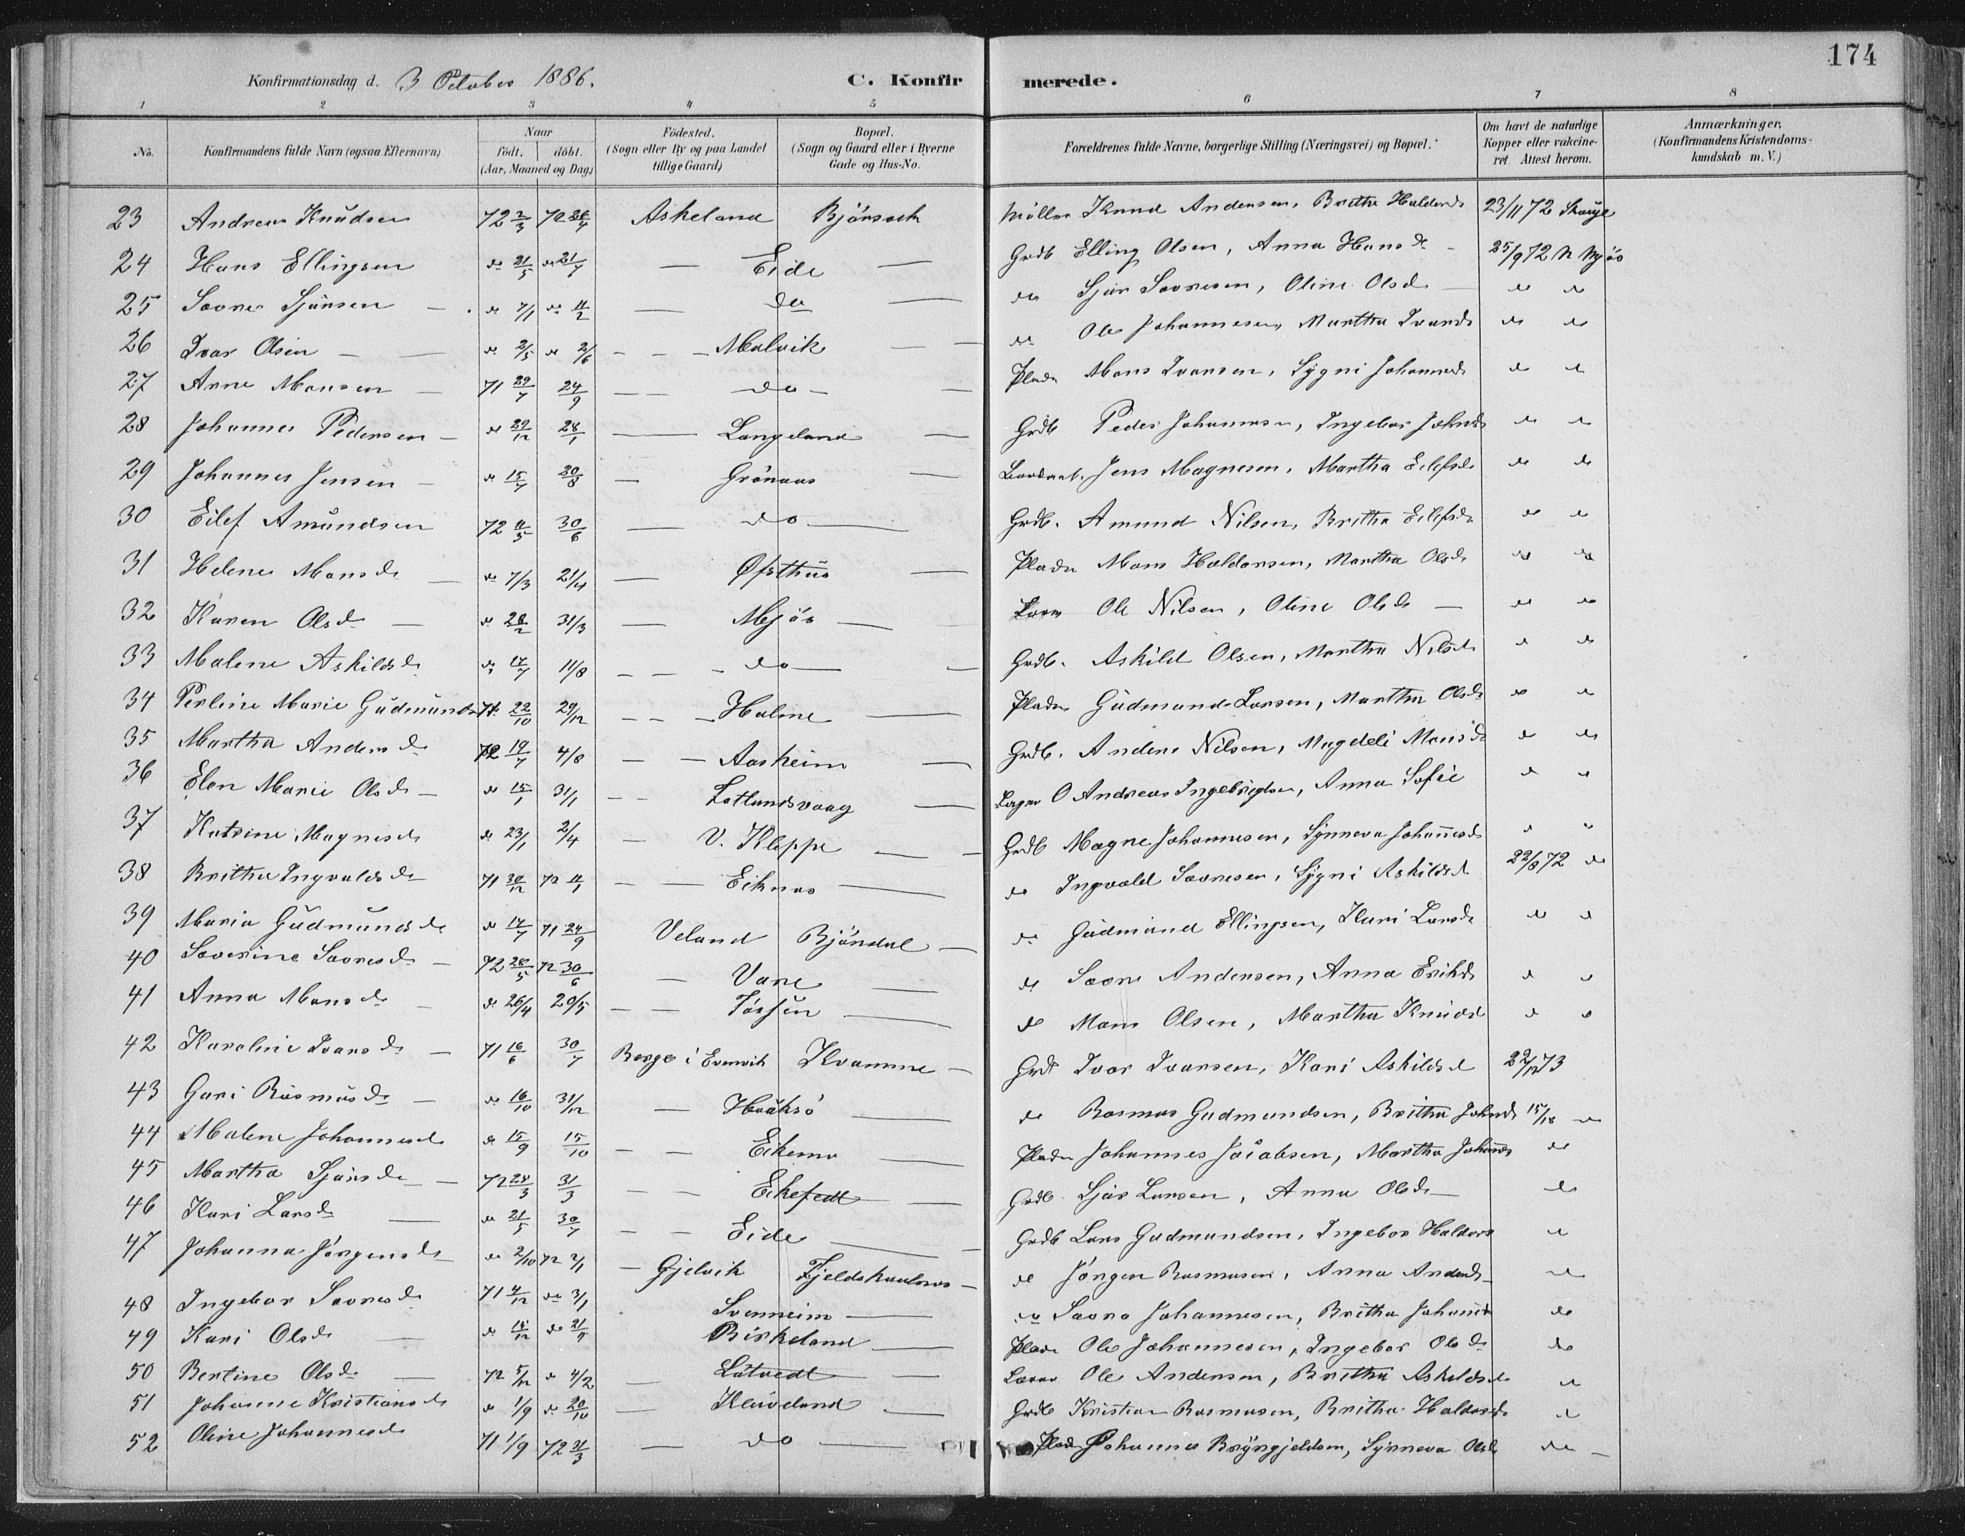 174
Konfirmationsdag d. 3 October 1886. C. Konfirmerede.
1 2 3 4 5 6 7 8
No. Konfirmandens fulde Navn (ogsaa Efternavn) Naar født, døbt. (Aar, Maaned og Dag) Fødested. (Sogn eller By og paa Landet tillige Gaard) Bopæl. (Sogn og Gaard eller i Byerne Gade og Hus-No. Forældrenes fulde Navne, borgerlige Stilling (Næringsvei) og Bopæl. Om havt de naturlige Kopper eller vakcineret Attest herom. Anmærkninger, (Konfirmandens Kristendomskundskab m. V.)
23 Andreas Knudsen 72 Askeland Møller Knud Andersen, Britha Haldord 23/11 72
24 Hans Ellingsen do 21/5 do 21/7 — Eide — Grdb Elling Olsen, Anna Hansd — 25/9 72
25 Sjursen do 7/1 do 11/2 — do — do Sjur Olsd — do do
26 Ivar Olsen — do 2/5 do 2/6 — Molvik — do Ole Johannesen, Martha Ivarsd do do
27 Arne Monsen — 71 29/7 24/9 — do — Plads Mons Ivarsen, Sygni Johannesd do do
28 Johannes Pedersen — do 29/12 28/1 — Langeland — Grdb Peder Johannesen, Ingebor do do
29 Johannes Jensen — do 15/7 20/8 — Grønaas — Jens Magnesen, Martha Eilefsd do do
30 Eilef Amundsen 72 11/5 30/6 — do — Grdb. Amund Nilsen, Britha Eilefsd do do
31 Helene Monsd — do 7/3 21/4 — Øfsthus — Plads Mons Haldorsen, Martha Olsd do do
32 Karen Olsd — do 28/2 31/3 — Mjøs — Ole Nilsen, Oline Olsd — do do
33 Malene Askildsd do 17/7 11/8 — do — Grdb. Askild Olsen, Martha Nilsd do do
34 Perline Marie Gudmunds 71 22/10 29/12 — Holme — Plads Gudmund Larsen, Martha Olsd do do
35 Martha Andersd 72 19/7 4/8 — Aasheim — Grdb. Anders Nilsen, Magdeli Monsd do do
36 Elen Marie Olsd — do 15/1 31/1 — Lotlandsvaag — O Andreas Ingebrigtsen, Anna Sofie do do
37 Katrine Magnesd do 23/1 2/4 — V. Kleppe — Grdb Magne Johannesen, Synneva Johannesd
38 Britha Ingvaldsd 71 30/12 72 — Eiknes — do Ingvald Sygni Askildsd 22/8 72 do
39 Maria Gudmundsd do 17/7 71 24/9 Veland Bjøndal — do Gudmund Ellingsen, Kari Larsd do do
40 Severine 72 28/5 72 30/6 — Vare — do Andersen, Anna Eriksd do do
41 Anna Monsd — do 26/4 29/5 — — do Mons Olsen, Martha Knudsd do do
42 Karoline Ivarsd — 71 16/6 30/7 Berge i Evenvik Kvamme — Grdb Ivar Ivarsen, Kari Askildsd 73
43 Guri Rasmusd — do 16/10 31/12 — — do Rasmus Gudmundsen, Britha do
44 Malene Johannesd do 15/9 15/10 — Eikemo — Plads Johannes Jacobsen, Martha do
45 Martha Sjursd — 72 28/3 31/3 — — Grdb Sjur Larsen, Anna Olsd — do
46 Kari Larsd — do 21/5 30/7 — Eide — Grdb Lars Gudmundsen, Ingebor Haldors do
47 Johanna Jørgensd do 2/10 72 2/1 — Gjelvik — do Jørgen Rasmusen, Anna Andersd do
48 Ingebor 71 do 3/1 — Svenheim — do Johannesen, Britha do
49 Kari Olsd — do Birkeland — Plads Ole Johannesen, Ingebor Olsd do
50 Bertine Olsd — 72 do 4/2 — Lutvedt — Ole Andersen, Britha Askildsd do
51 Johanne Kristiansd do 1/9 do 20/10 — Kleiveland — Grdb Kristian Rasmusen, Britha Haldorsd do
52 Oline Johannesd 71 1/9 72 31/3 — do — Plads Johannes Brynjeldsen, Synneva Olsd do —